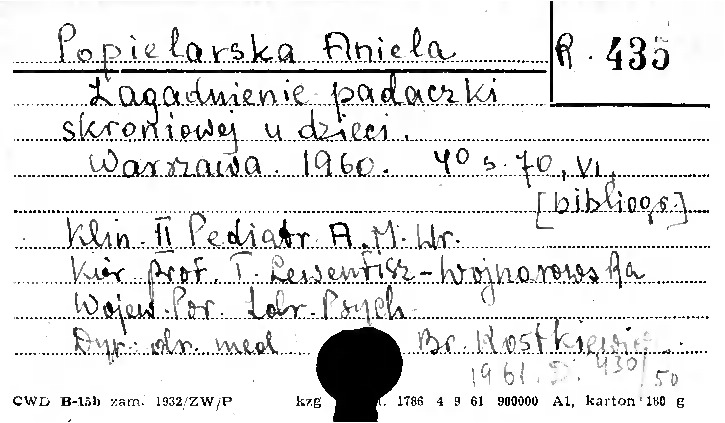 Popielarska Aniela
R. 435
Zagadnienie padaczki
skroniowej u dzieci.
Warszawa. 1960. 4° s. 70, VI,
[bibliogr.]
Klin. II Pediatr. A. M. Wr.
Kier. prof. T. Lewenfisz-Wojnarowska
Wojew. Por. Zdr. Psych.
Dyr. dr. med Br. Kostkiewicz.
1961. D. 430/50
CWD B-15b zam. 1932/ZW/P kzg 1786 4 9 61 900000 A1, karton 180 g